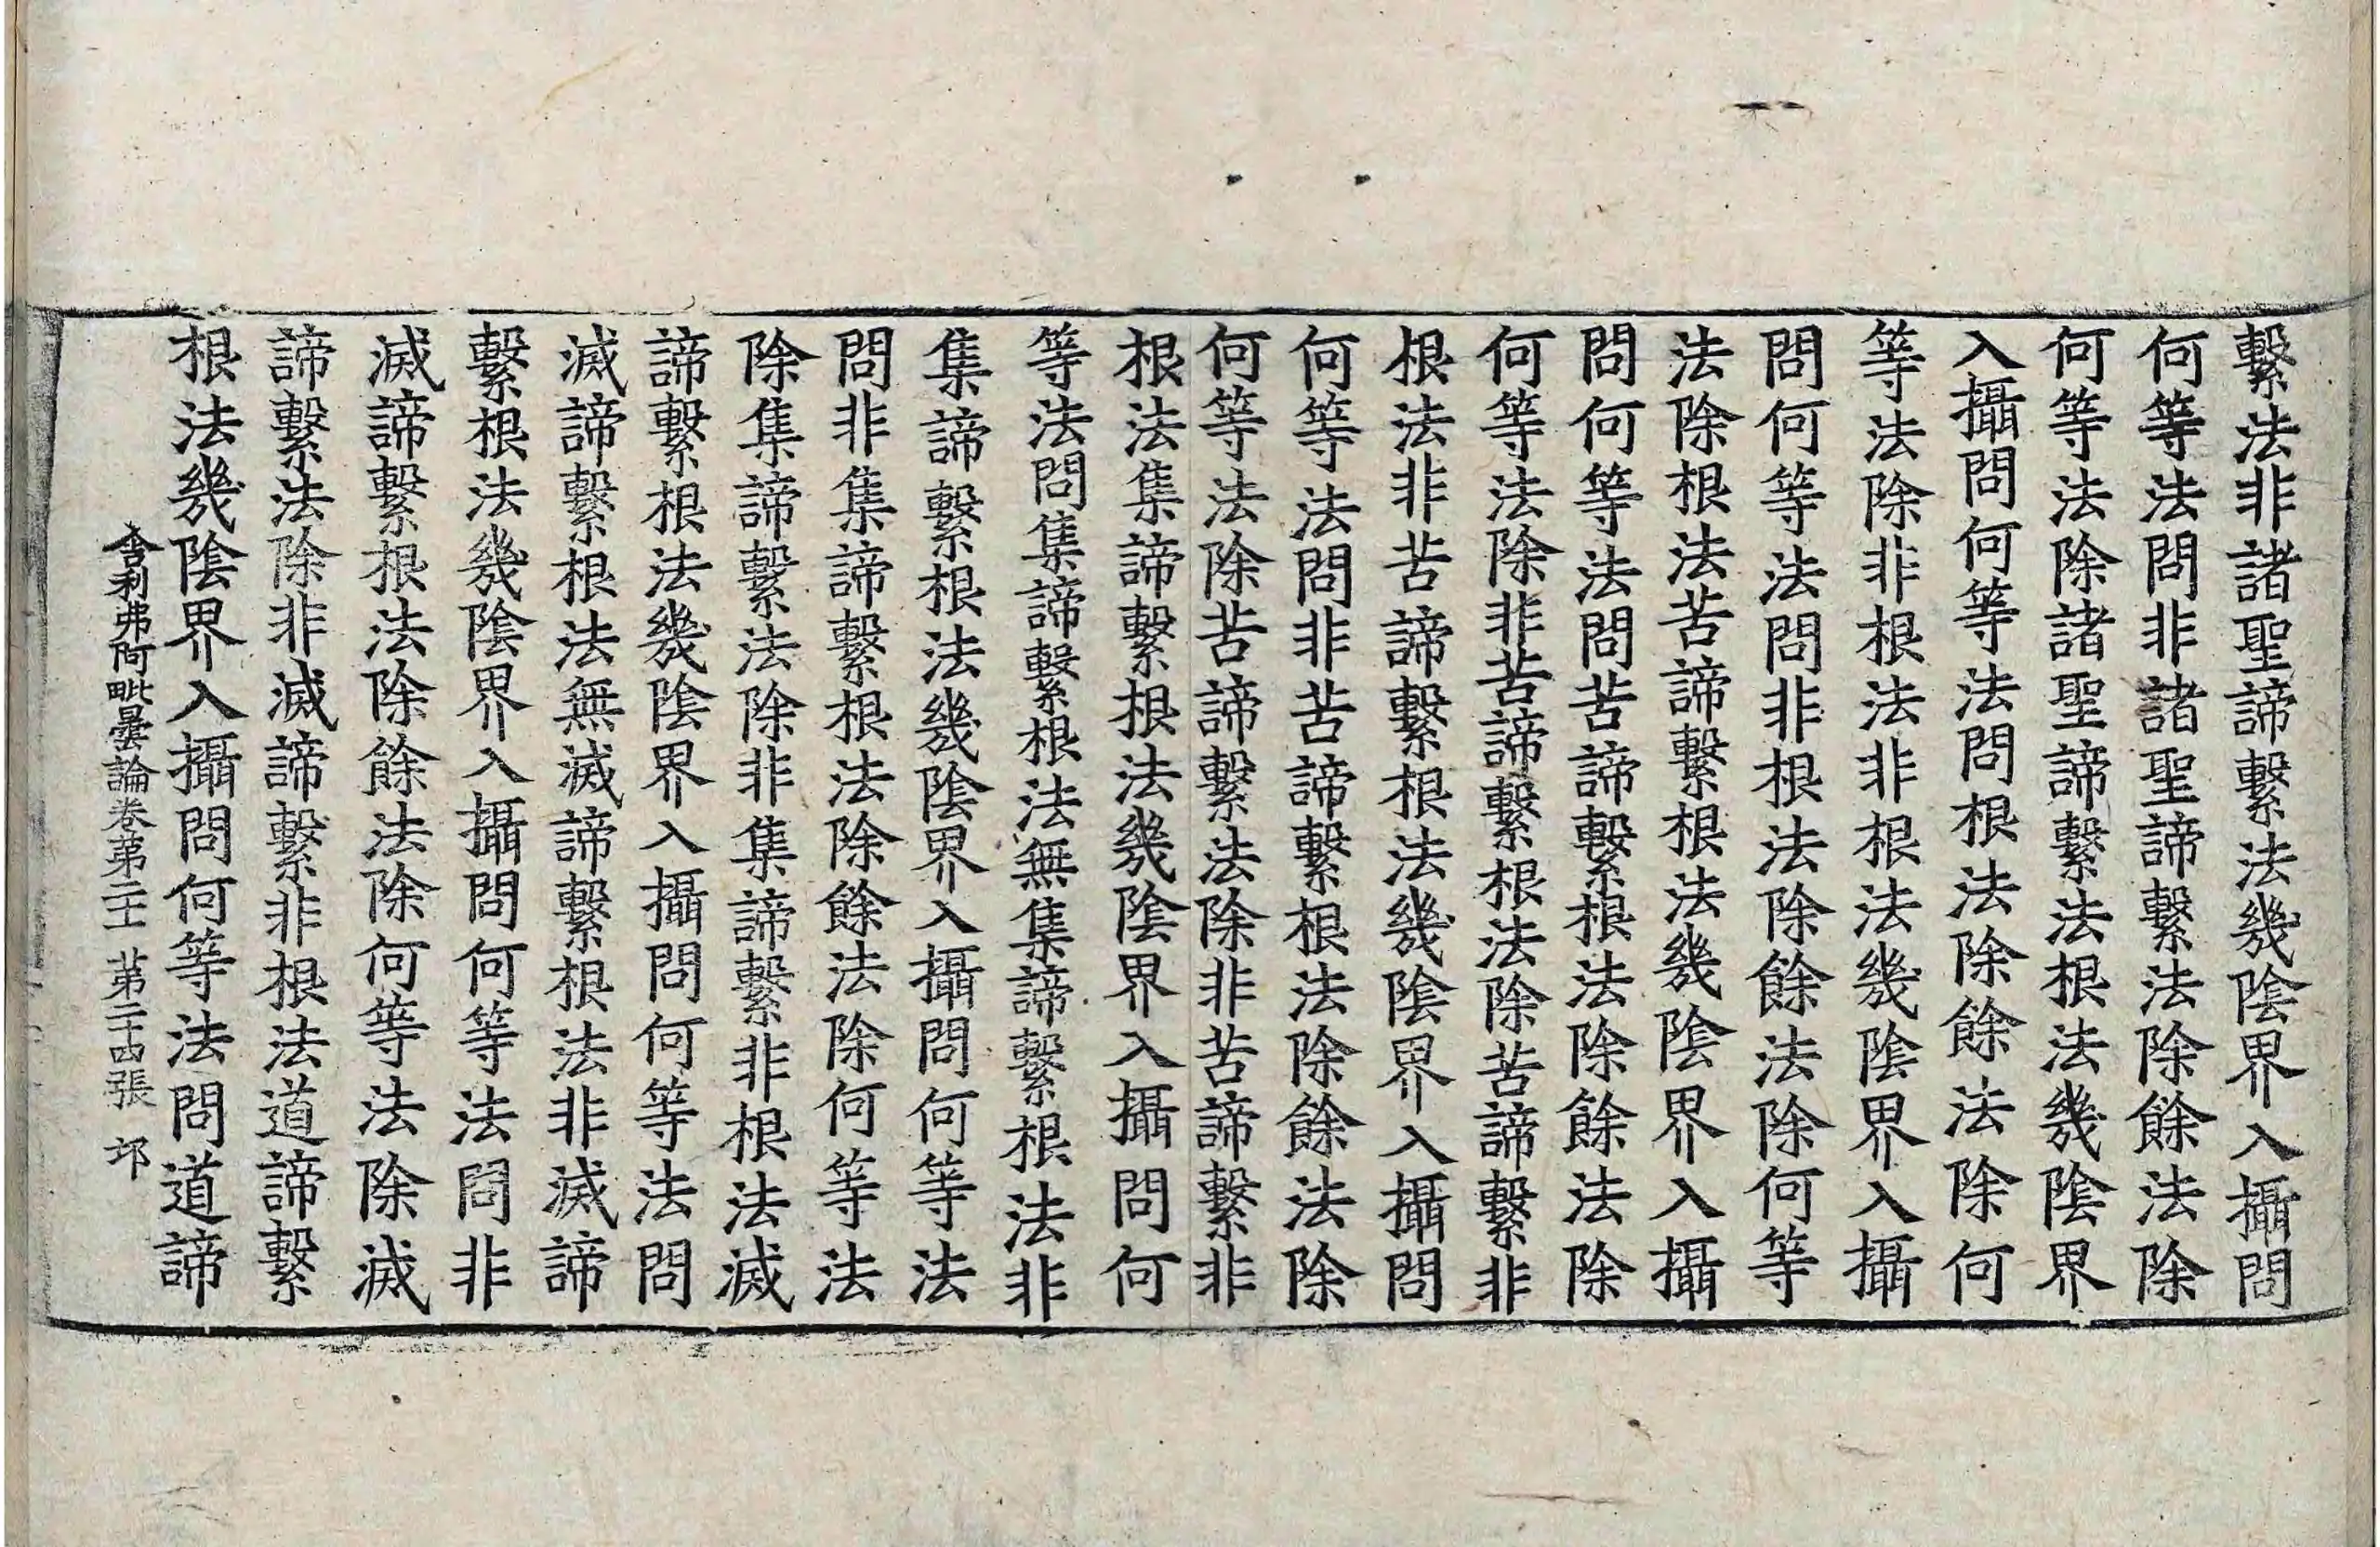 繫法非諸聖諦繫法幾陰界入攝問
何等法問非諸聖諦繫法除餘法除
何等法除諸聖諦繫法根法幾陰界
入攝問何等法問根法除餘法除何
等法除非根法非根法幾陰界入攝
問何等法問非根法除餘法除何等
法除根法苦諦繫根法幾陰界入攝
問何等法問苦諦繫根法除餘法除
何等法除非苦諦繫根法除苦諦繫非
根法非苦諦繫根法幾陰界入攝問
何等法問非苦諦繫根法除餘法除
何等法除苦諦繫法除非苦諦繫非
根法集諦繫根法幾陰界入攝問何
等法問集諦繫根法無集諦繫根法非
集諦繫根法幾陰界入攝問何等法
問非集諦繫根法除餘法除何等法
除集諦繫法除非集諦繫非根法滅
諦繫根法幾陰界入攝問何等法問
滅諦繫根法無滅諦繫根法非滅諦
繫根法幾陰界入攝問何等法問非
滅諦繫根法除餘法除何等法除滅
諦繫法除非滅諦繫非根法道諦繫
根法幾陰界入攝問何等法問道諦
舍利弗阿毗曇論卷第二十 第二十四張 邙